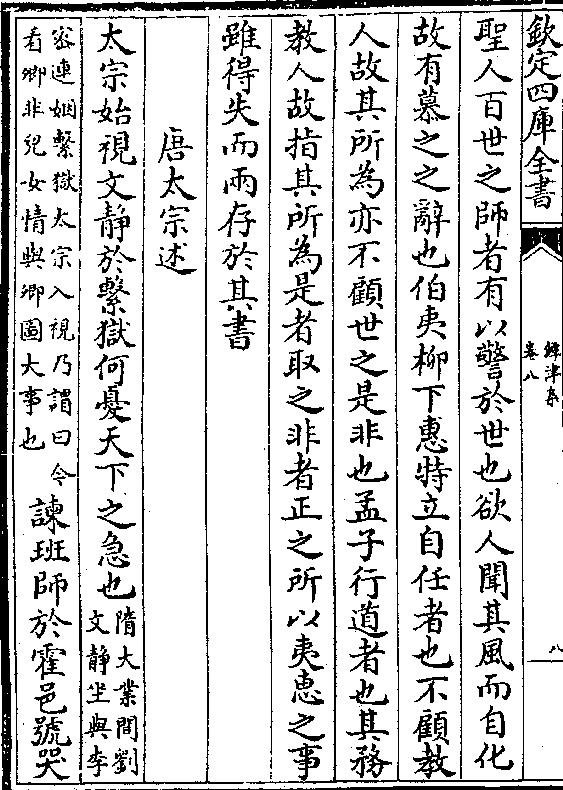 欽定四庫全書
鐔津集
卷八
八
聖人百世之師者有以警於世也欲人聞其風而自化
故有慕之之辭也伯夷柳下惠特立自任者也不顧教
人故其所為亦不顧世之是非也孟子行道者也其務
教人故指其所為是者取之非者正之所以夷惠之事
雖得失而兩存於其書
唐太宗述
太宗始視文靜於繫獄何憂天下之急也隋大業間劉
文靜坐與李
密連姻繫獄太宗入視乃謂曰今
看卿非兒女情與卿圖大事也諫班師於霍邑號哭